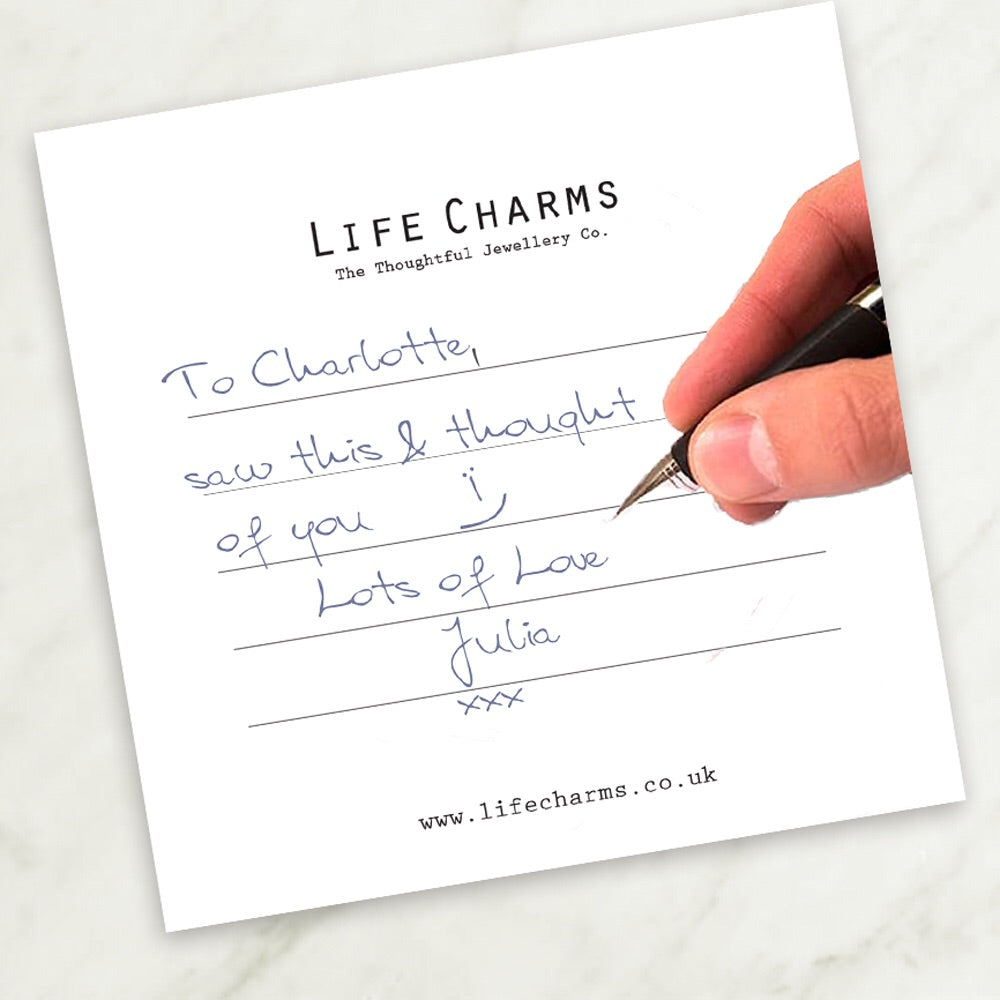 LIFE CHARMS
The Thoughtful Jewellery Co.
To Charlotte,
saw this & thought
of you
Lots of Love
Julia
xxx
www.lifecharms.co.uk